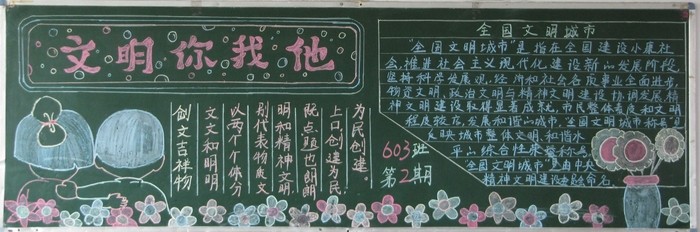 文明你我他
创文吉祥物
文文和明明
以两个个体分
别代表物质文
明和精神文明
既点题也朗朗
上口,创建为民,
为民创建。
603班
第2期
全国文明城市
"全国文明城市"是指在全国建设小康社
会,推进社会主义现代化建设新的发展阶段,
坚持科学发展观,经济和社会各项事业全面进步,
物质文明、政治文明与精神文明建设协调发展,精
神文明建设取得显著成就,市民整体素质和文明
程度较高,发展和谐的城市。全国文明城市称号是
反映城市整体文明和谐水
平的综合性荣誉称号。
"全国文明城市"是由中央
精神文明建设委员会命名。